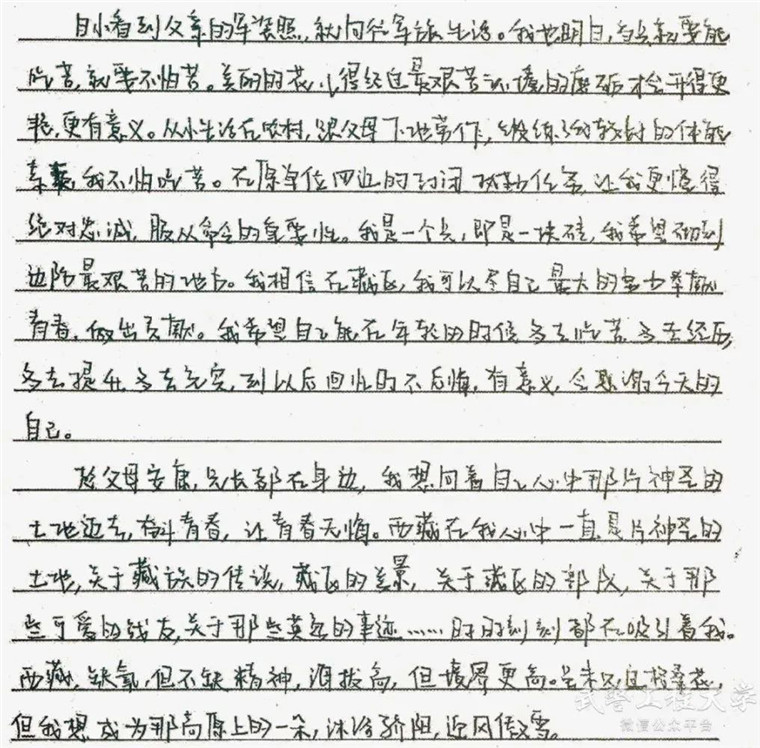 自小看到父亲的军装照,就向往军旅生活。我也明白,当兵就要能
吃苦,就要不怕苦。美丽的花儿得经过最艰苦环境的磨砺才会开得更
艳,更有意义。从小生活在农村,跟父母下地劳作,锻练了我较好的体能
素养,我不怕吃苦。在原单位四近的封闭执勤任务,让我更懂得
绝对忠诚,服从命令的重要性。我是一个兵,即是一块砖,我希望砌到
边防最艰苦的地方。我相信在藏区,我可以尽自己最大的努力奉献
青春,做出贡献。我希望自己能在年轻的时候多去吃苦,多去经历,
多去提升,多去充实,到以后回忆时不后悔,有意义,会感谢今天的
自己。
趁父母安康,兄长都在身边,我想向着自己心中那片神圣的
土地迈去,奋斗青春,让青春无悔。西藏在我心中一直是片神圣的
土地,关于藏族的传说,藏区的美景,关于藏区的部队,关于那
些可爱的战友,关于那些英雄的事迹……时时刻刻都在吸引着我。
西藏,缺氧,但不缺精神,海拔高,但境界更高。虽未见过格桑花,
但我想成为那高原上的一朵,沐浴骄阳,迎风傲雪。
武警工程大学
微信公众平台